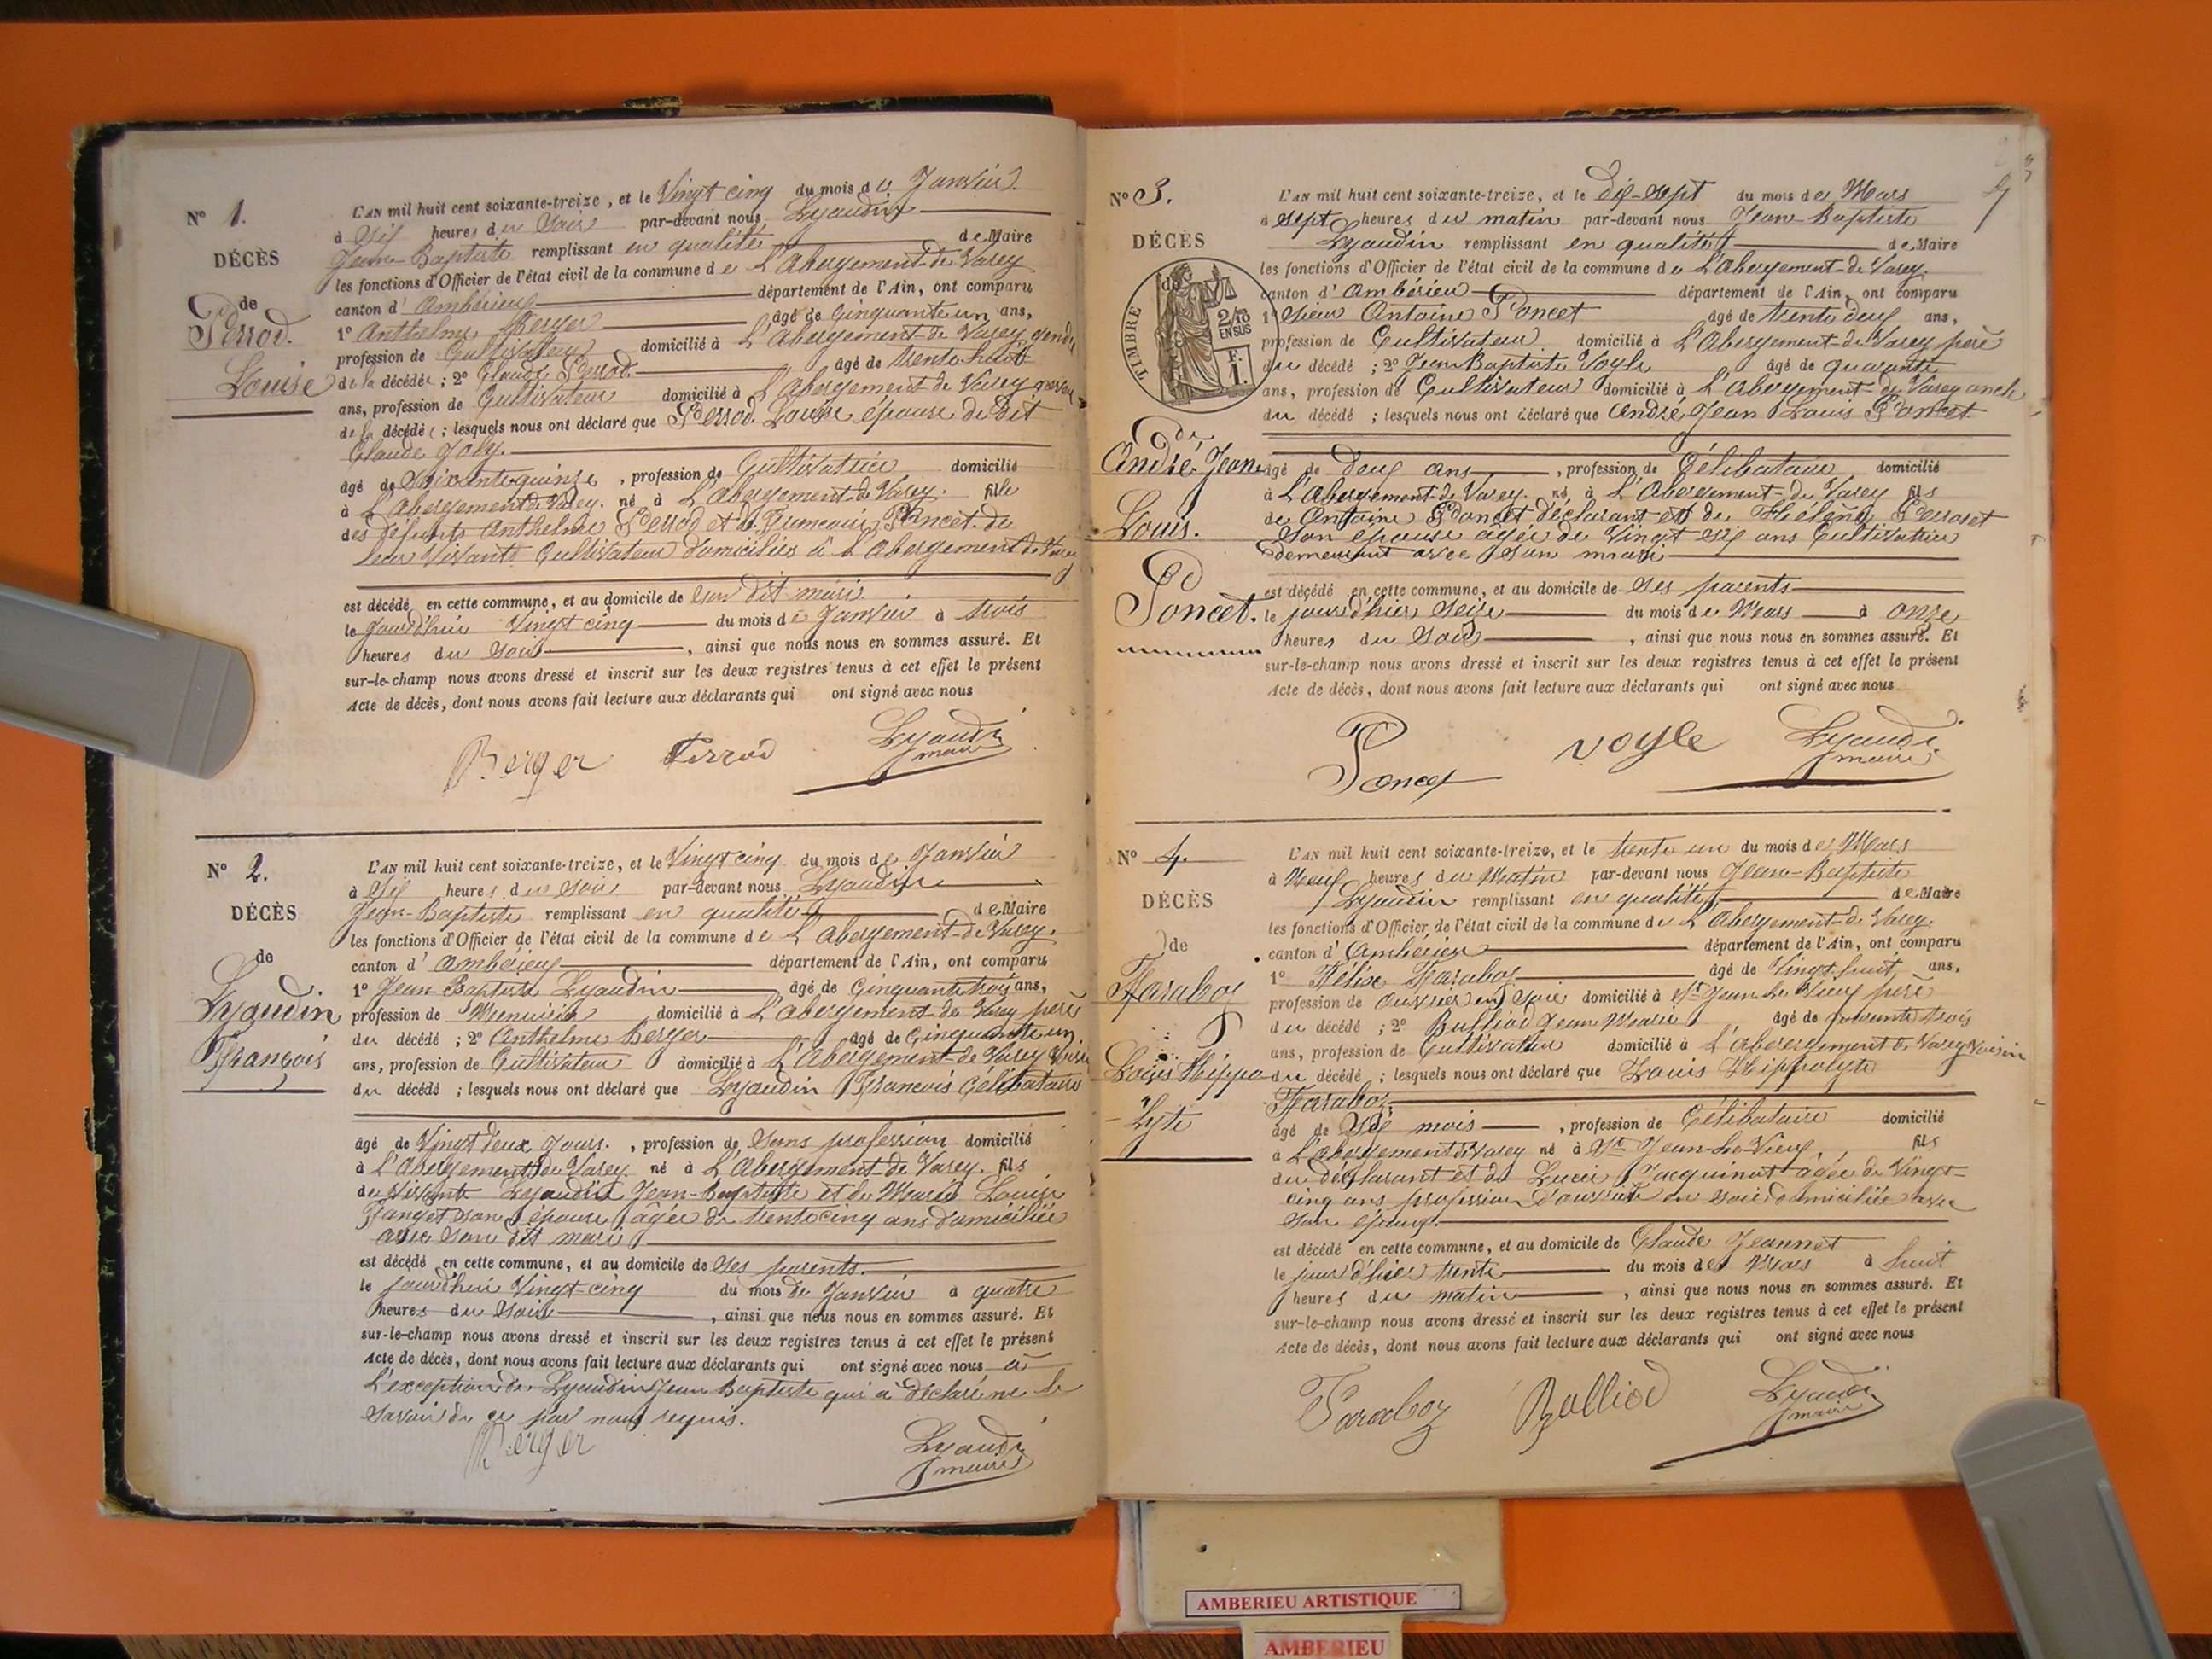 N° 1.
DÉCÈS
de
Perrod.
Louise
L'AN mil huit cent soixante-treize, et le Vingt cinq du mois de Janvier
à Six heures du Soir par-devant nous Lyaudin
Jean-Baptiste remplissant en qualité de Maire
les fonctions d'Officier de l'état civil de la commune de L'Abergement-de Varey
canton d'Ambérieux département de l'Ain, ont comparu
1° Anthelme Berger âgé de Cinquante un ans,
profession de Cultivateur domicilié à L'Abergement-de Varey gendre
de la décédée ; 2° Claude Perrod. âgé de trente huit
ans, profession de Cultivateur domicilié à L'Abergement de Varey neveu
de la décédée ; lesquels nous ont déclaré que Perrod. Louise épouse de dit
Claude Joly.
âgé de Soixante quinze, profession de Cultivatrice domicilié
à L'Abergement de Varey. né à L'Abergement-de Varey. fille
des défunts Anthelme Perrod et de Poncet. de
leur Vivants Cultivateur domiciliés à L'Abergement de Varey
est décédé en cette commune, et au domicile de son dit mari
le Jourd'hui Vingt cinq du mois de Janvier à trois
heures du Soir, ainsi que nous nous en sommes assuré. Et
sur-le-champ nous avons dressé et inscrit sur les deux registres tenus à cet effet le présent
Acte de décès, dont nous avons fait lecture aux déclarants qui ont signé avec nous
Berger Perrod Lyaudin
maire
N° 2.
DÉCÈS
de
Lyaudin
François
L'AN mil huit cent soixante-treize, et le Vingt cinq du mois de Janvier
à Six heures du Soir par-devant nous Lyaudin
Jean-Baptiste remplissant en qualité de Maire
les fonctions d'Officier de l'état civil de la commune de L'Abergement-de Varey.
canton d'Ambérieux département de l'Ain, ont comparu
1° Jean-Baptiste Lyaudin âgé de Cinquante trois ans,
profession de Menuisier domicilié à L'Abergement-de Varey père
du décédé ; 2° Anthelme Berger âgé de Cinquante un
ans, profession de Cultivateur domicilié à L'Abergement-de Varey Voisin
du décédé ; lesquels nous ont déclaré que Lyaudin François Célibataire
âgé de Vingt deux Jours., profession de Sans profession domicilié
à L'Abergement de Varey né à L'Abergement de Varey. fils
de Vivants Lyaudin Jean-Baptiste et de Marie Louise
son épouse âgée de trente cinq ans domiciliée
avec son dit mari
est décédé en cette commune, et au domicile de Ses parents.
le jourd'hui Vingt-cinq du mois de Janvier à quatre
heures du Soir, ainsi que nous nous en sommes assuré. Et
sur-le-champ nous avons dressé et inscrit sur les deux registres tenus à cet effet le présent
Acte de décès, dont nous avons fait lecture aux déclarants qui ont signé avec nous à
L'exception de Lyaudin Jean Baptiste qui a déclaré ne le
savoir de ce par nous requis.
Berger Lyaudin
maire
N° 3.
DÉCÈS
de
TIMBRE
2/10
EN SUS
F.
1.
André Jean
Louis.
Poncet.
L'AN mil huit cent soixante-treize, et le Dix-sept du mois de Mars
à sept heures du matin par-devant nous Jean-Baptiste
Lyaudin remplissant en qualité de Maire
les fonctions d'Officier de l'état civil de la commune de L'Abergement-de Varey.
canton d'Ambérieu département de l'Ain, ont comparu
1° Sieur Antoine Poncet âgé de trente deux ans,
profession de Cultivateur domicilié à L'Abergement-de Varey père
du décédé ; 2° Jean Baptiste Voyle âgé de quarante
ans, profession de Cultivateur domicilié à L'Abergement-de Varey oncle
du décédé ; lesquels nous ont déclaré que André Jean Louis Poncet
âgé de deux ans, profession de Célibataire domicilié
à L'Abergement-de Varey. né à L'Abergement-de Varey fils
de Antoine Poncet déclarant et de Hélène
son épouse âgée de Vingt six ans Cultivatrice
demeurant avec son mari
est décédé en cette commune, et au domicile de Ses parents
le jour d'hier Seize du mois de Mars à onze
heures du Soir, ainsi que nous nous en sommes assuré. Et
sur-le-champ nous avons dressé et inscrit sur les deux registres tenus à cet effet le présent
Acte de décès, dont nous avons fait lecture aux déclarants qui ont signé avec nous
Poncet voyle Lyaudin
maire
N° 4.
DÉCÈS
de
Faraboz
Louis Hippo
-Lyte
L'AN mil huit cent soixante-treize, et le trente un du mois de Mars
à Neuf heures du Matin par-devant nous Jean-Baptiste
Lyaudin remplissant en qualité de Maire
les fonctions d'Officier de l'état civil de la commune de L'Abergement-de Varey.
canton d'Ambérieu département de l'Ain, ont comparu
1° Félix Faraboz âgé de Vingt huit ans,
profession de ouvrier en Soie domicilié à St Jean-le-Vieux père
du décédé ; 2° Bulliod Jean Marie âgé de soixante trois
ans, profession de Cultivateur domicilié à L'Abergement de Varey Voisin
du décédé ; lesquels nous ont déclaré que Louis Hippolyte
Faraboz
âgé de Six mois, profession de Célibataire domicilié
à L'Abergement de Varey né à St Jean-Le-Vieux, fils
du déclarant et de Lucie Jacquinot âgée de Vingt-
cinq ans profession d'ouvrière en soie domiciliée avec
son époux
est décédé en cette commune, et au domicile de Claude Jeannet
le jour d'hier trente du mois de Mars à huit
heures du matin, ainsi que nous nous en sommes assuré. Et
sur-le-champ nous avons dressé et inscrit sur les deux registres tenus à cet effet le présent
Acte de décès, dont nous avons fait lecture aux déclarants qui ont signé avec nous
Faraboz Bulliod Lyaudin
maire
AMBERIEU ARTISTIQUE
AMBERIEU